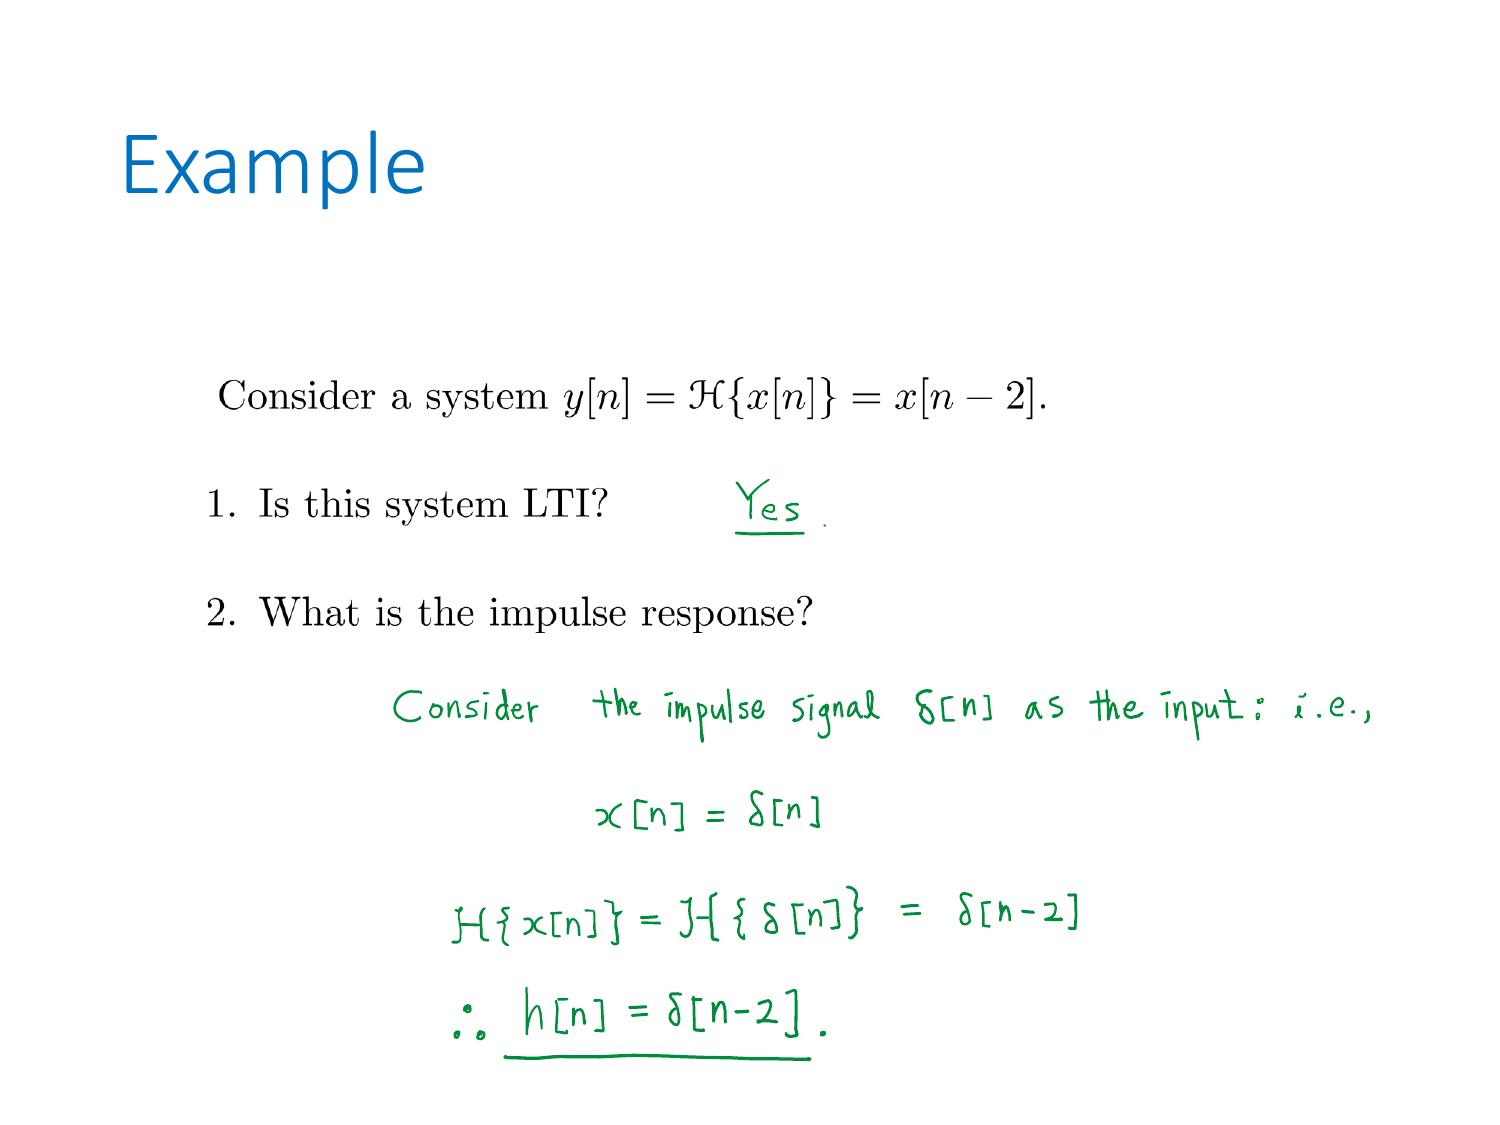 Example
Consider a system y[n] = ℋ{x[n]} = x[n − 2].
1. Is this system LTI? Yes.
2. What is the impulse response?
Consider the impulse signal δ[n] as the input: i.e.,
x[n] = δ[n]
ℋ{x[n]} = ℋ{δ[n]} = δ[n-2]
∴ h[n] = δ[n-2].